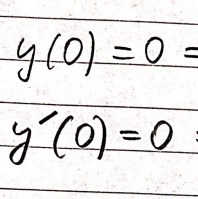 y(0) = 0 =
y′(0) = 0 =